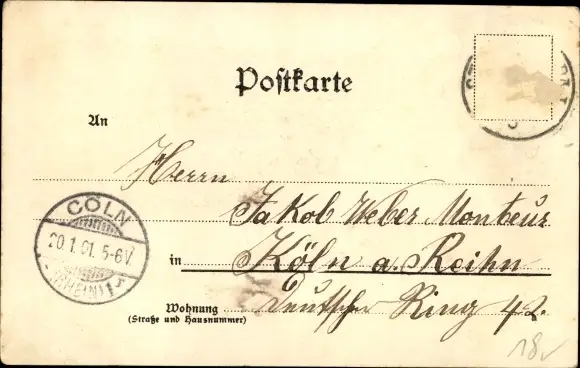 Postkarte
An
Herrn
Jakob Weber Monteur
in Köln a. Reihn
Wohnung Deutscher Ring 42.
(Straße und Hausnummer)
CÖLN
20.1.01. 5-6V
(RHEIN) 1
18